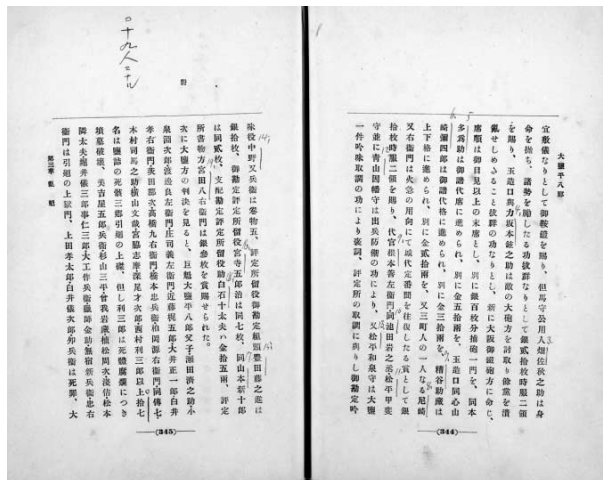 大鹽平八郎
宜敷儀なりとして御鞍鐙を賜り、但馬守公用人畑佐秋之助は身
命を抛ち、諸勢を勵したる功拔群なりとして銀貳拾枚時服二領
を賜り、玉造口與力坂本鉉之助は敵の大砲方を討取り餘黨を潰
亂せしめたること拔群の功なりとし、新に大阪御鐵砲方に命じ、
席順は御目見以上の末席とし、別に銀百枚分捕砲一門を、同本
多爲助は御譜代席に進められ、別に金五拾兩を、玉造口同心山
崎彌四郎は御譜代格に進められ、別に金三拾兩を、糟谷助藏は
上下格に進められ、別に金貳拾兩を、又三町人の一人なる尼崎
又右衞門は火急の用向にて城代定番間を往復したる賞として銀
拾枚時服二領を賜り、代官根本善左衞門同池田岩之丞松平甲斐
守並に青山因幡守は出兵防禦の功により、又松平和泉守は大鹽
一件吟味取調の功により褒詞、評定所の取調に與りし御勘定吟
(344)
味役中野又兵衞は卷物五、評定所留役御勘定組頭豐田藤之進は
銀拾枚、御勘定評定所留役宮寺五郎治は同七枚、同山本新十郎
は同貳枚、支配勘定評定所留役助白石十太夫ハ金拾五兩、評定
所書物方宮田八右衞門は銀參枚を賞賜せられた。
次に大鹽方の判決を見ると、巨魁大鹽平八郎父子瀬田濟之助小
泉淵次郎渡邊良左衞門庄司義左衞門近藤梶五郎大井正一郎白井
孝右衞門茨田郡次高橋九右衞門柏岡源右衞門同傳七
木村司馬之助橫山文哉宮脇志摩深尾才次郎西村利三郎以上拾七
名は鹽詰の死骸三鄕引廻の上磔、但し利三郎は死體腐爛につき
墳墓破壞、美吉屋五郎兵衞杉山三平曾我岩藏植松周次淺佶松本
隣太夫堀井儀三郎事仁三郎大工作兵衞獵師金助無宿新兵衞忠右
衞門は引廻の上獄門、上田孝太郎白井儀次郎卯兵衞は死罪、大
(345)